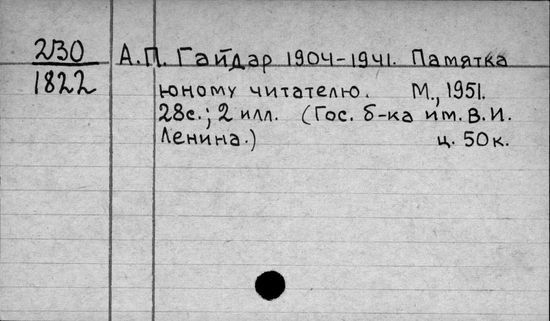 230
1822
А.П. Гайдар 1904-1941. Памятка
юному читателю. М., 1951.
28с.; 2 илл. (Гос. б-ка им. В.И.
Ленина.) ц. 50к.